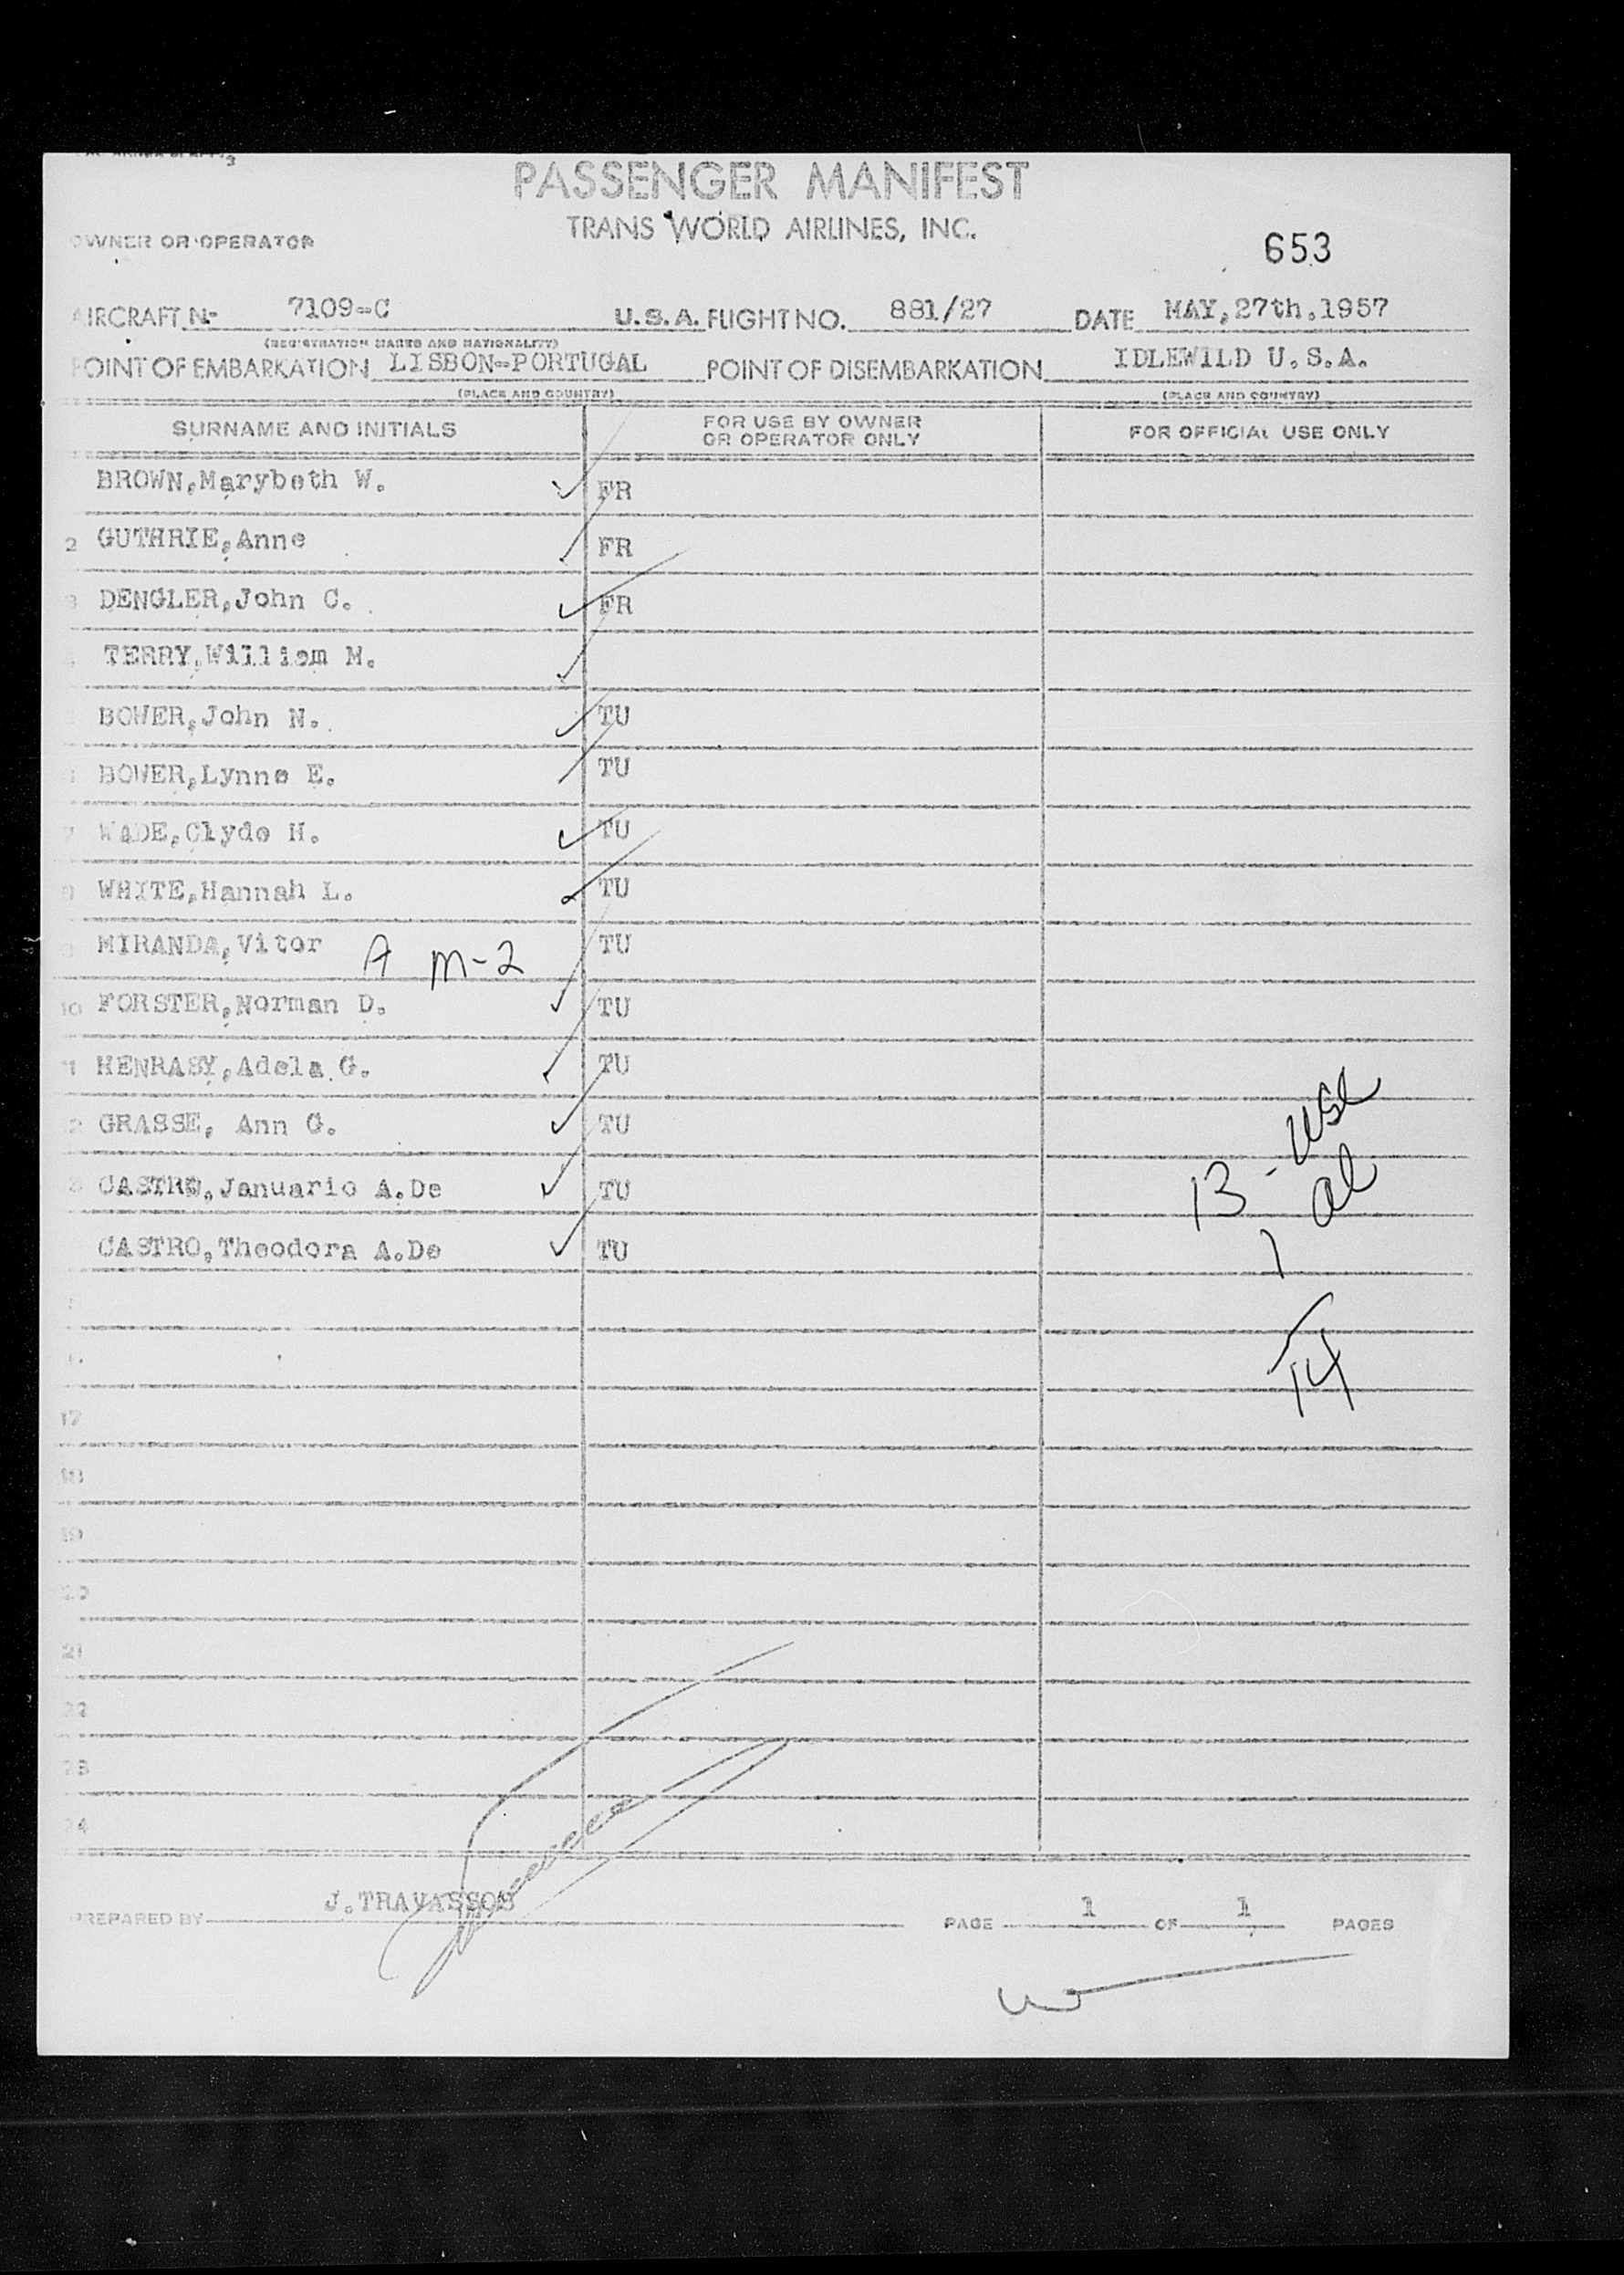 PASSENGER MANIFEST
TRANS WORLD AIRLINES, INC.
OWNER OR OPERATOR
653
AIRCRAFT N- 7109-C U.S.A. FLIGHT NO. 881/27 DATE MAY,27th.1957
(REGISTRATION MARKS AND NATIONALITY)
POINT OF EMBARKATION LISBON-PORTUGAL POINT OF DISEMBARKATION IDLEWILD U.S.A.
(PLACE AND COUNTRY) (PLACE AND COUNTRY)
SURNAME AND INITIALS FOR USE BY OWNER OR OPERATOR ONLY FOR OFFICIAL USE ONLY
BROWN,Marybeth W. FR
2 GUTHRIE,Anne FR
3 DENGLER,John C. FR
TERRY,William M.
BOWER,John N. TU
BOWER,Lynne E. TU
7 WADE,Clyde H. TU
WHITE,Hannah L. TU
MIRANDA,Vitor A M-2 TU
10 FORSTER,Norman D. TU
11 HENRASY,Adela G. TU
2 GRASSE, Ann G. TU
3 CASTRO,Januario A.De TU
CASTRO,Theodora A.De TU
13 - USC
1 al
14
17
18
19
20
21
22
23
24
PREPARED BY J.TRAVASSOS PAGE 1 OF 1 PAGES